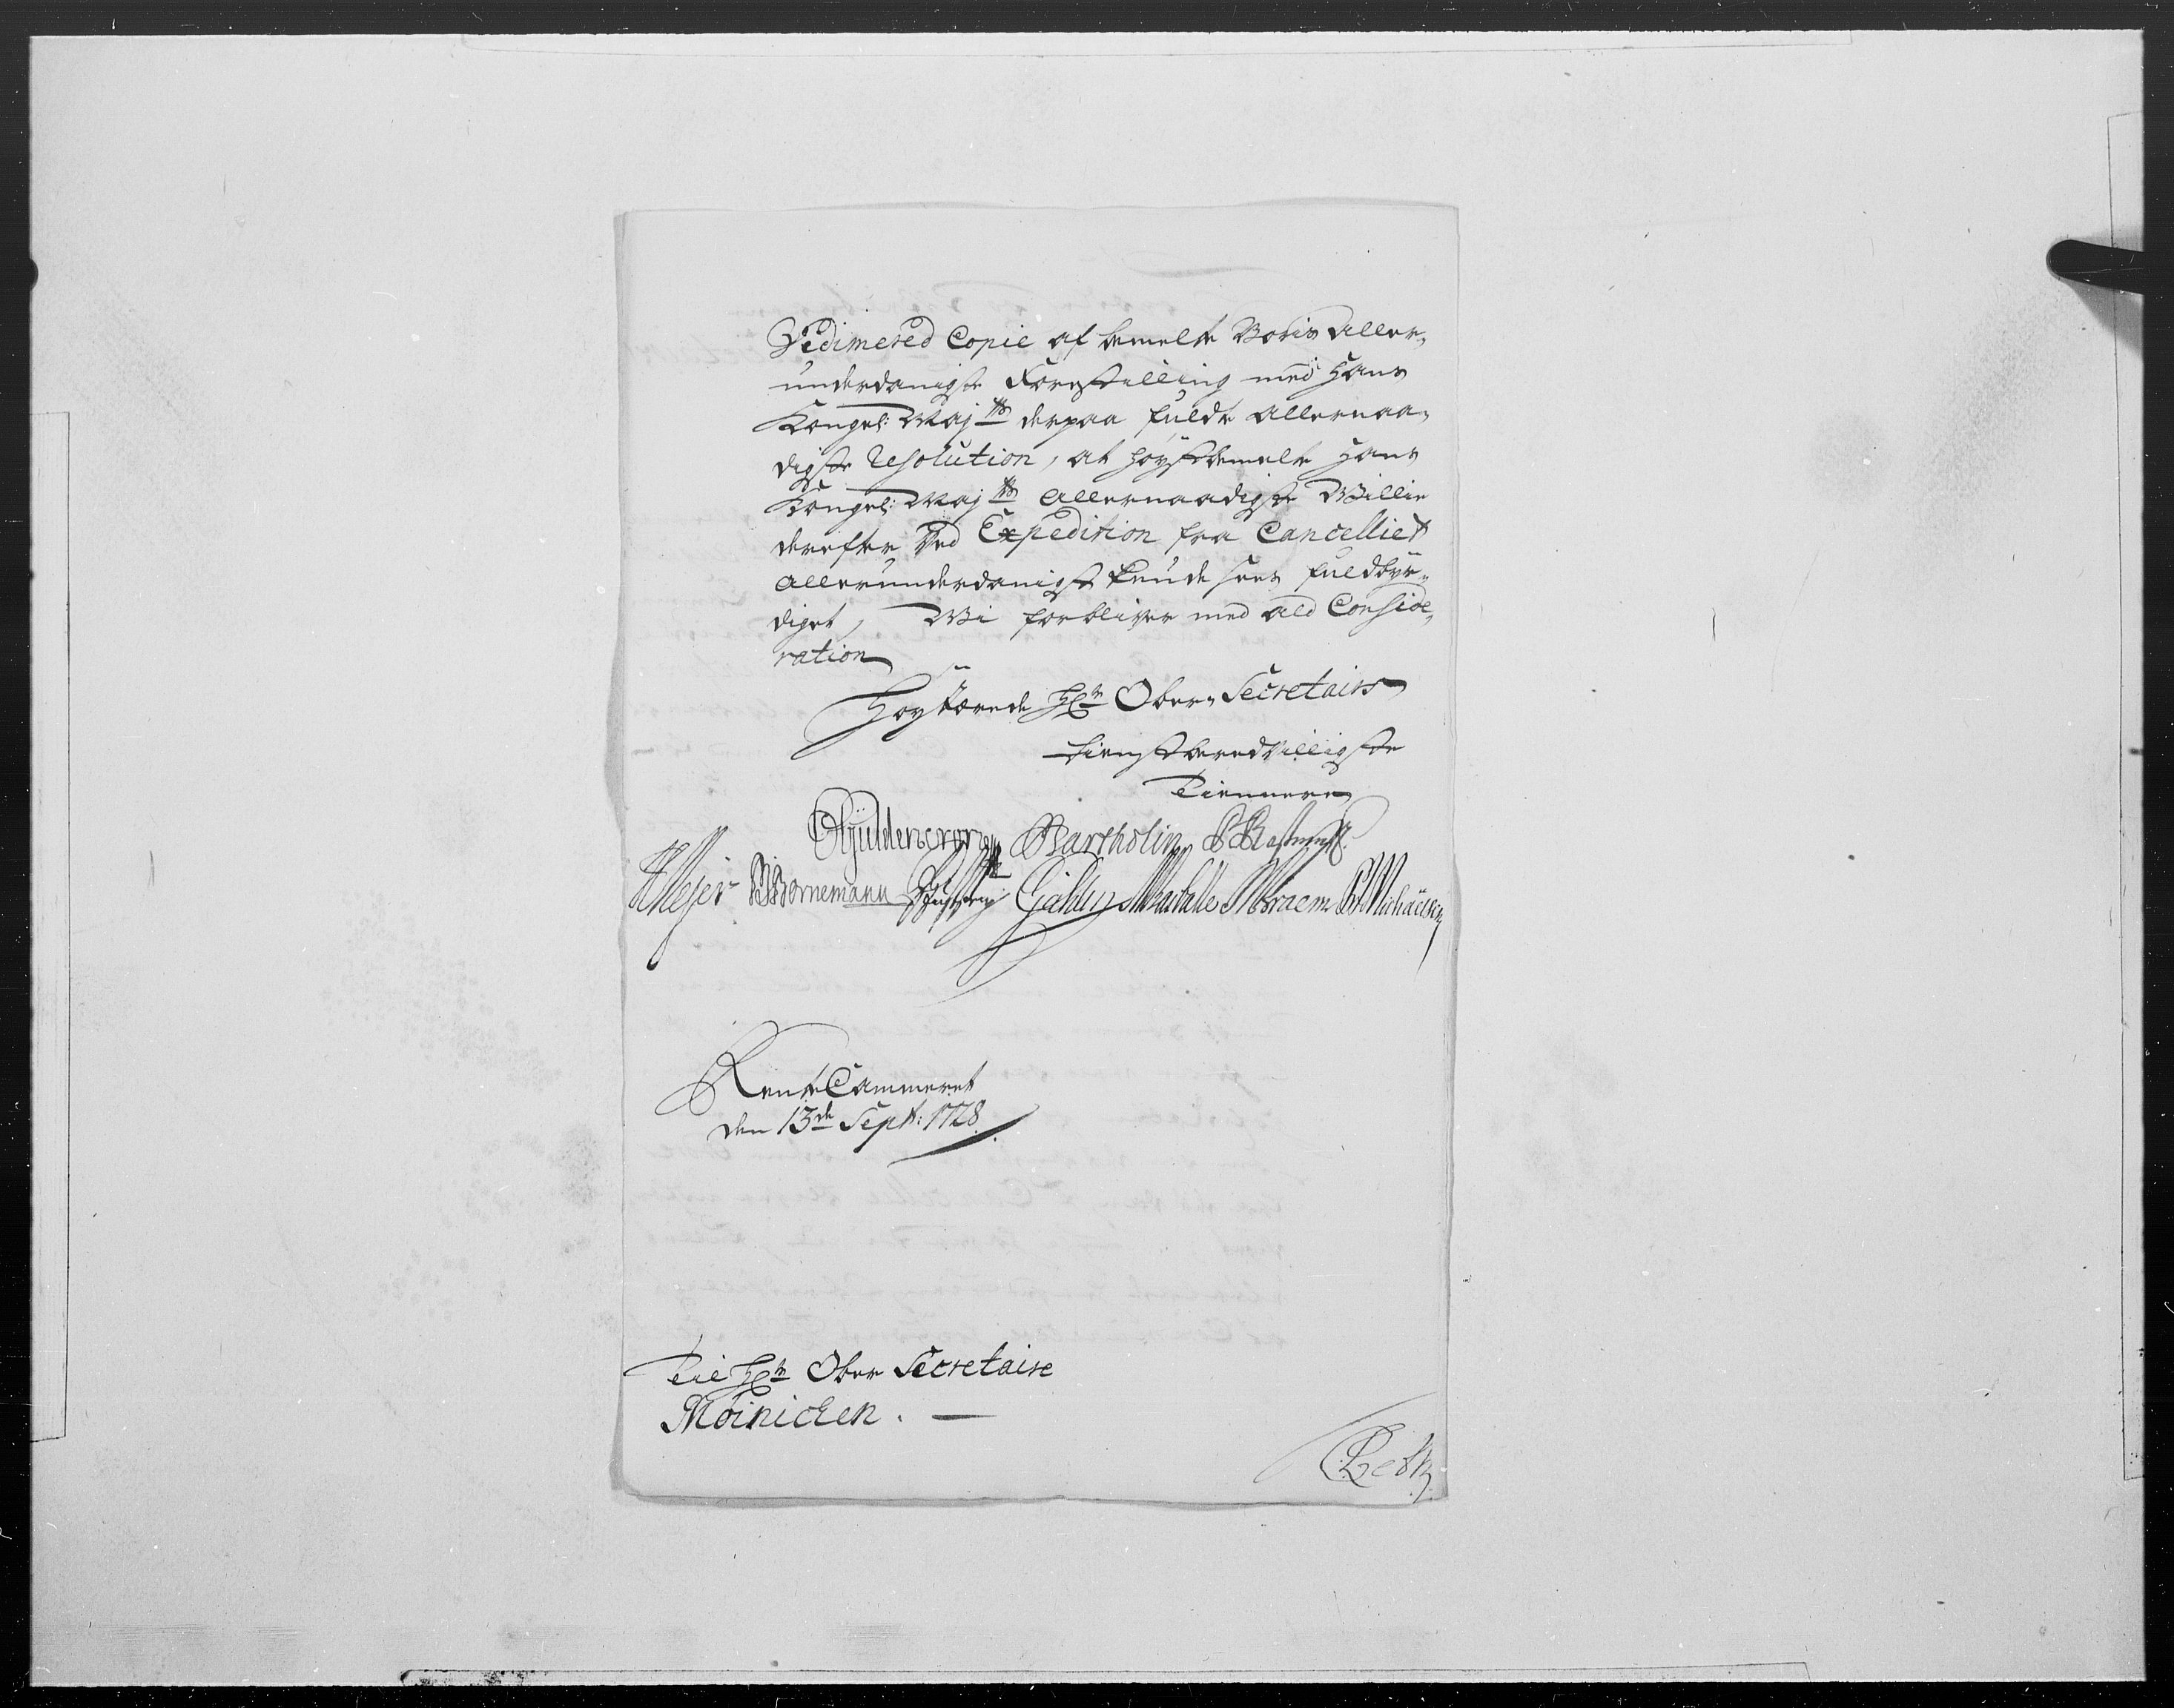 Vidimered Copie af bemelte Voris Aller-
underdanigste Forestilling med Hans
Kongel: Maj:ts derpaa fulde allernaa-
digste Resolution, at høystbemelte Hans
Kongel: Maj:ts allernaadigste Willie
derefter ved Expedition fra Cancelliet
allerunderdanigst kunde sees fuldbyr-
diget, Wi forbliver med ald Conside-
ration
Høytærede Hr Ober-Secretairs
tienstberedvilligste
Tiennere
Gyldencrone Bartholin
Meyer Bornemann Michaelsen
RenteCammeret
den 13de Sept: 1728.
Til Hr Ober Secretaire
Möinichen.